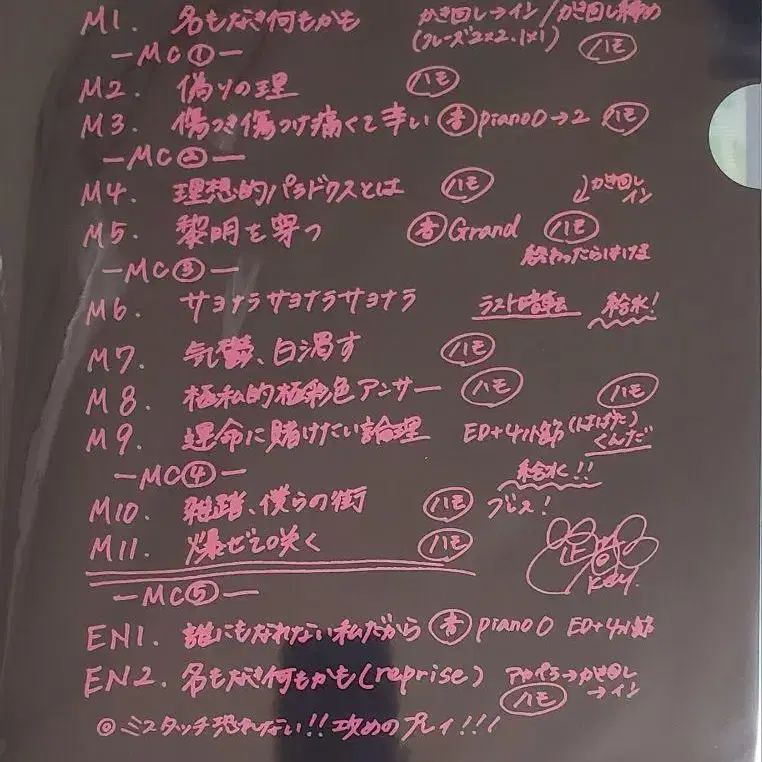 M1. 名もなき何もかも かき回し→イン/かき回し締め
(フレーズ2×2.1×1) ハモ
—MC①—
M2. 偽りの理 ハモ
M3. 傷つき傷つけ痛くて辛い 音piano0→2 ハモ
—MC②—
M4. 理想的パラドクスとは ハモ かき回し
イン
M5. 黎明を穿つ 音Grand ハモ
終わったらはける
—MC③—
M6. サヨナラサヨナラサヨナラ ラスト暗転 給水!
M7. 気鬱、白濁す ハモ
M8. 極私的極彩色アンサー ハモ ハモ
M9. 運命に賭けたい論理 ED+4小節 (はばた)
くんだ
—MC④— 給水!!
M10. 雑踏、僕らの街 ハモ ブレス!
M11. 爆ぜて咲く ハモ
key.
—MC⑤—
EN1. 誰にもなれない私だから 音piano0 ED+4小節
EN2. 名もなき何もかも(reprise) アカペラ→かき回し
ハモ →イン
◎ミスタッチ恐れない!!攻めのプレイ!!!